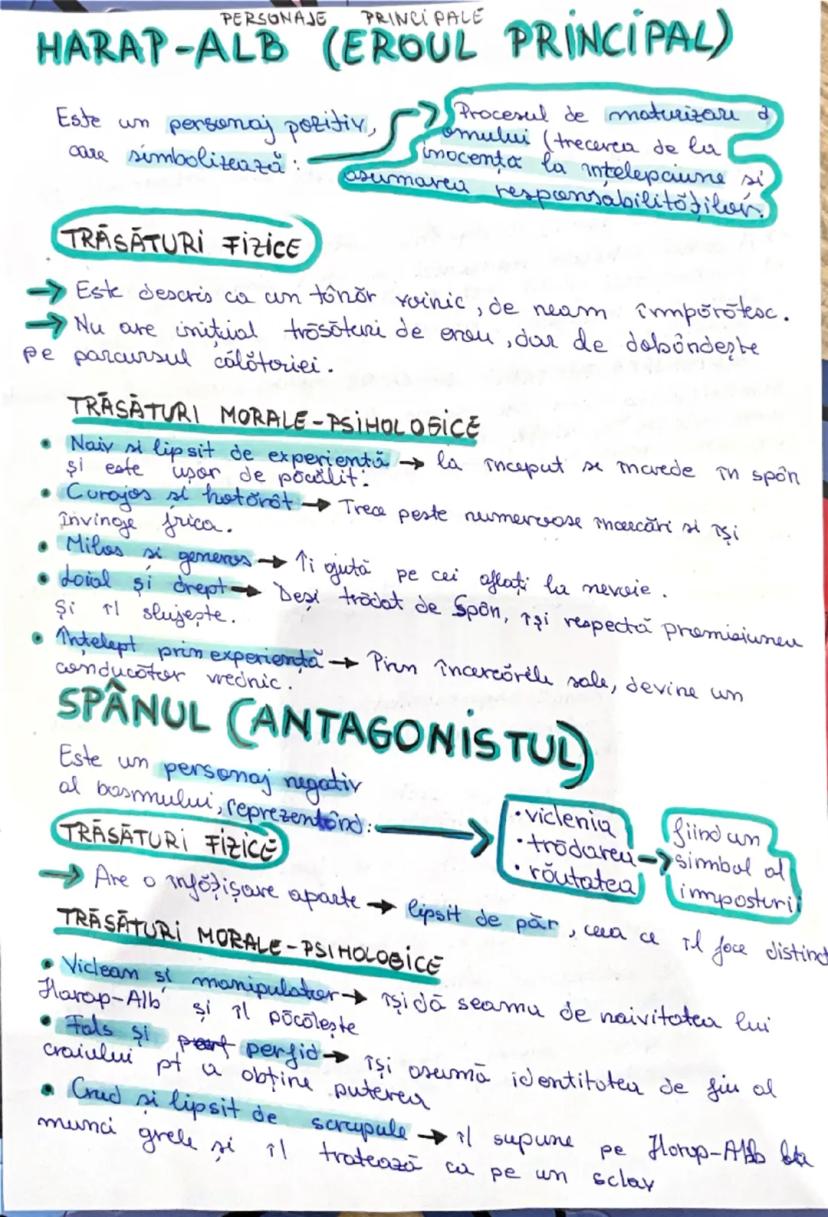 PERSONAJE PRINCIPALE
HARAP-ALB (EROUL PRINCIPAL)
Este un personaj pozitiv,
care simbolizează:
Procesul de maturizare a
omului (trecerea de la
inocență la înțelepciune și
asumarea responsabilităților.
TRĂSĂTURI FIZICE
→ Este descris ca un tânăr voinic, de neam împărătesc.
→ Nu are inițial trăsături de erou, dar de dobândește
pe parcursul călătoriei.
TRĂSĂTURI MORALE-PSIHOLOGICE
• Naiv si lipsit de experiență → la început se încrede în spân
și este ușor de păcălit.
• Curajos si hotărât → Trece peste numeroase încercări si își
învinge frica.
• Milos si generos → Îi ajută pe cei aflați la nevoie.
• Loial și drept → Deși trădat de Spân, își respectă promisiunea
și îl slujește.
• Înțelept prin experiență → Prin încercările sale, devine un
conducător vrednic.
SPÂNUL (ANTAGONISTUL)
Este un personaj negativ
al basmului, reprezentând:
• viclenia
• trădarea
• răutatea
→ fiind un
simbol al
imposturii
TRĂSĂTURI FIZICE
→ Are o înfățișare aparte → lipsit de păr, ceea ce îl face distinct
TRĂSĂTURI MORALE-PSIHOLOGICE
• Viclean și manipulator → își dă seama de naivitatea lui
Harap-Alb și îl păcălește
• Fals și perfid → își asumă identitatea de fiu al
craiului pt a obține puterea
• Crud si lipsit de scrupule → îl supune pe Harap-Alb la
munci grele și îl tratează ca pe un sclav